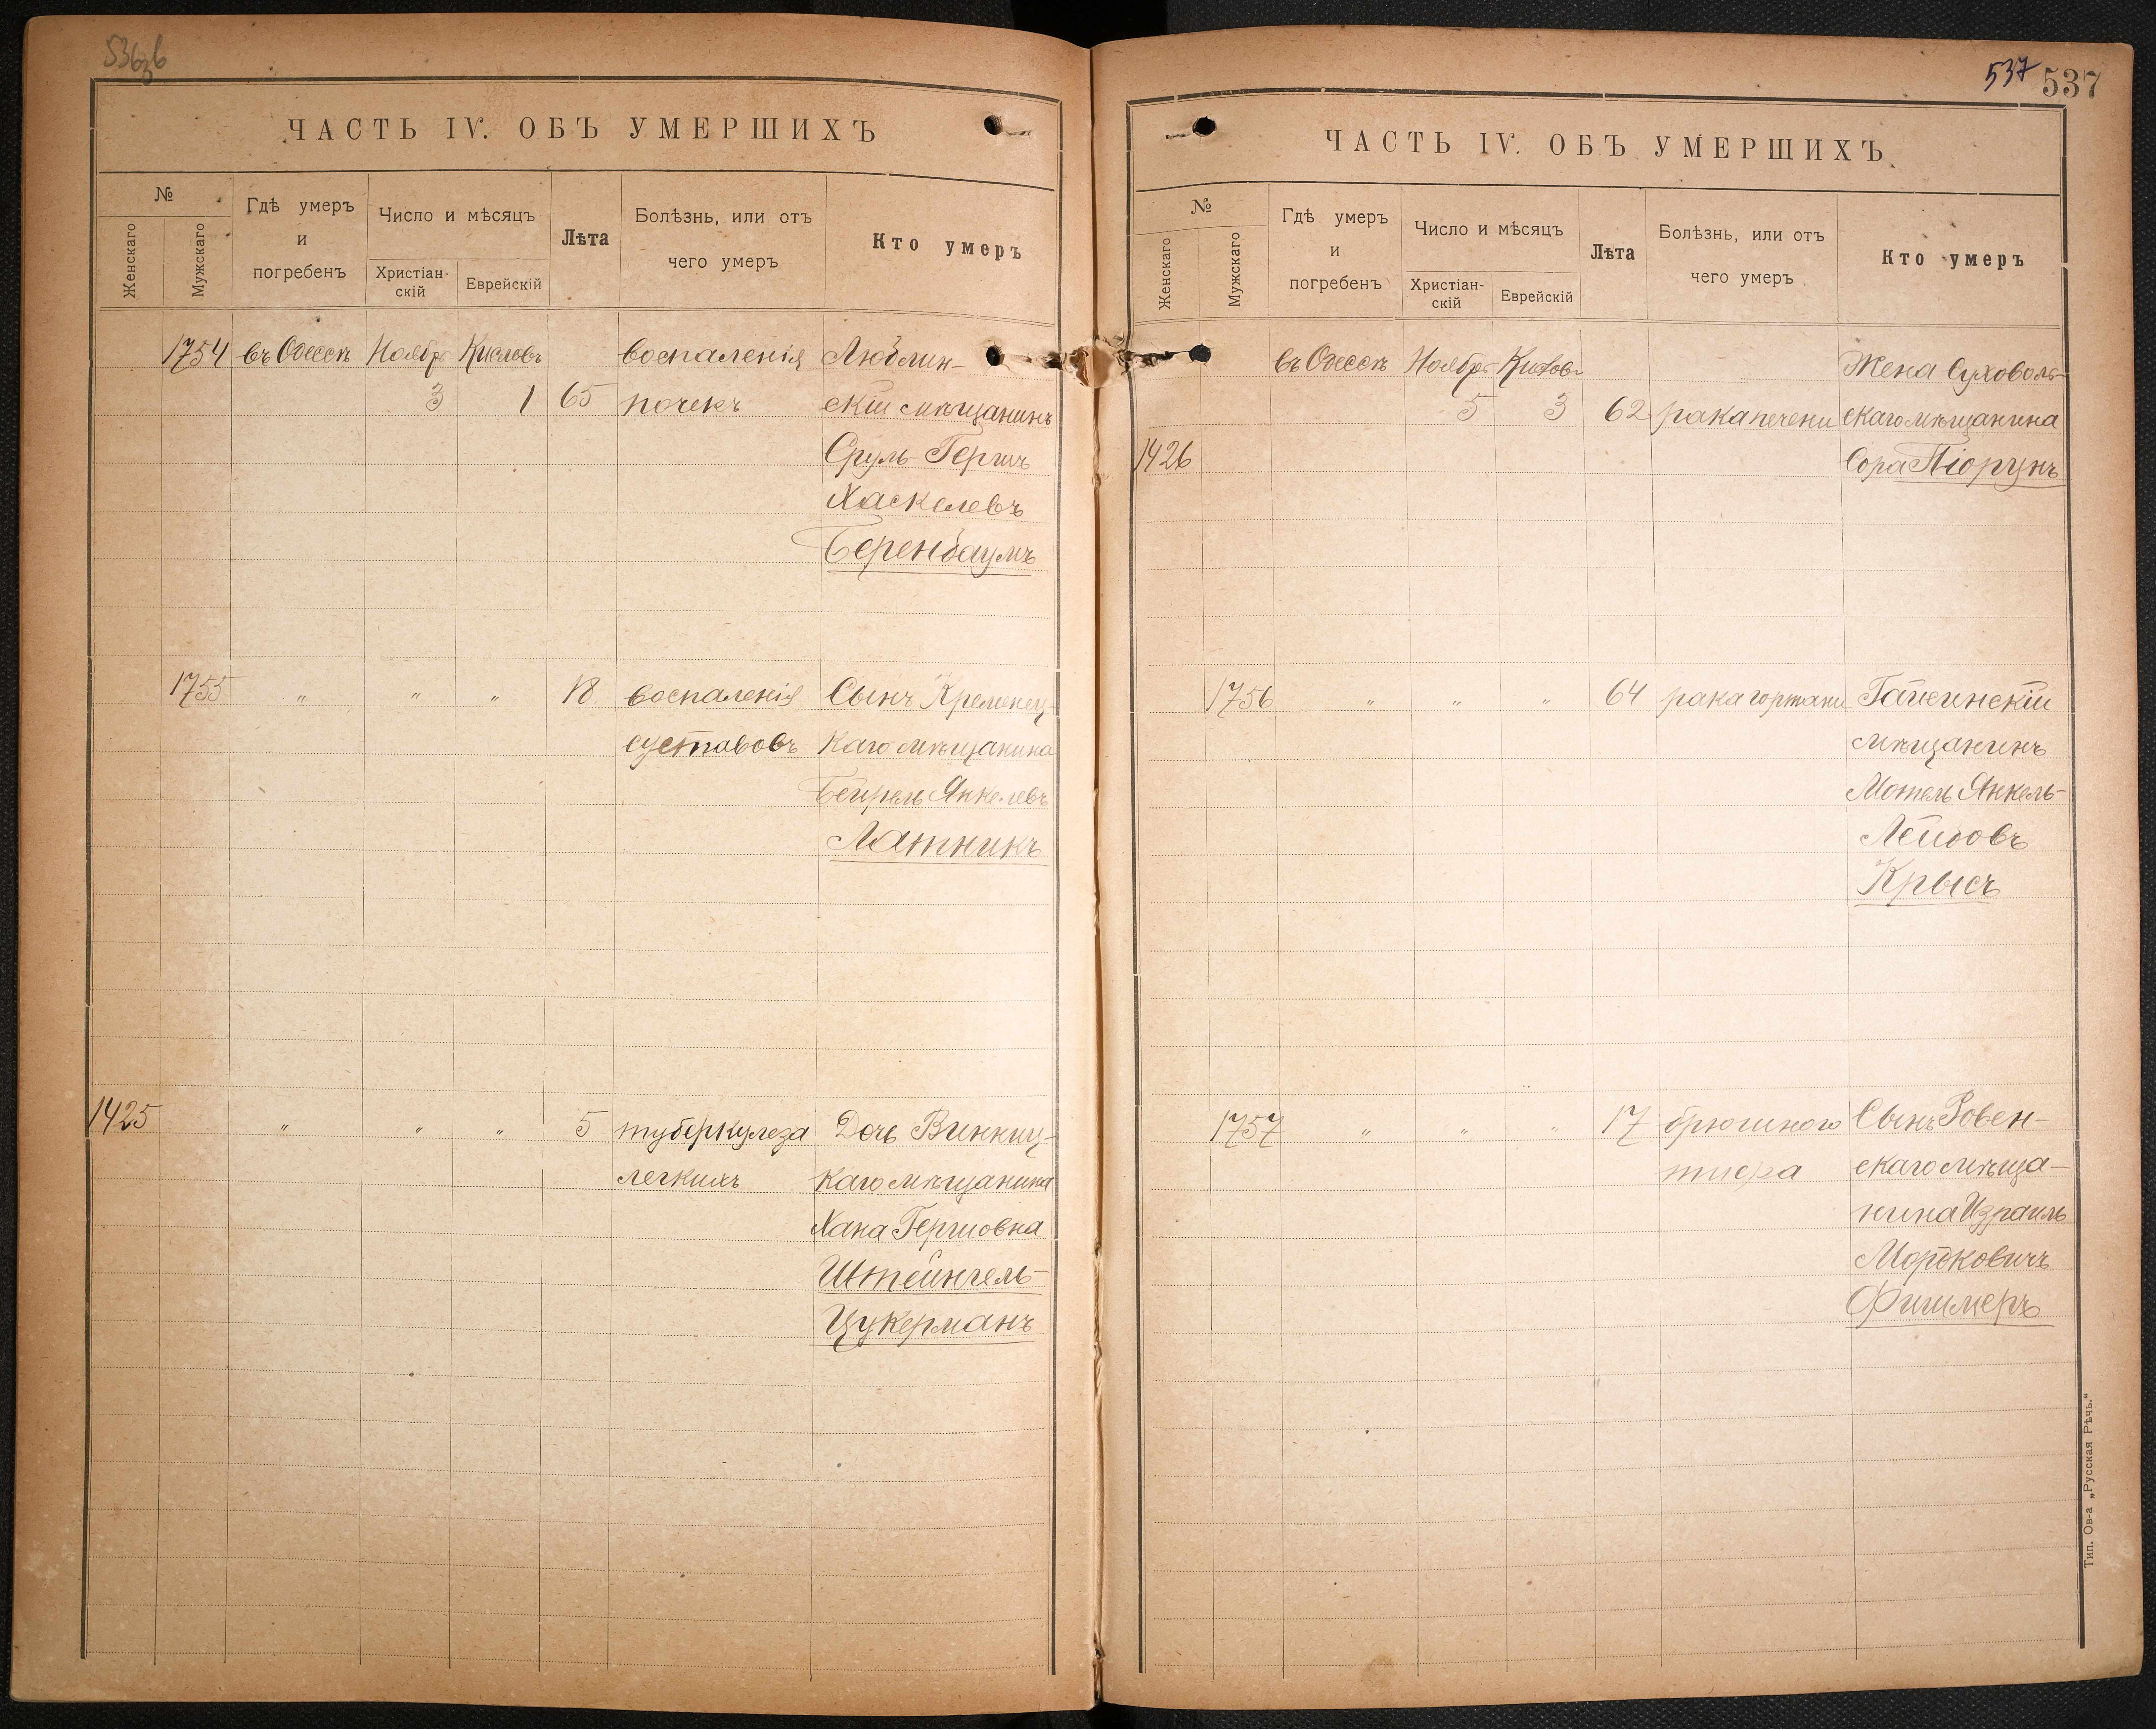 536
ЧАСТЬ IV. ОБЪ УМЕРШИХЪ
№
Женскаго
Мужскаго
Гдѣ умеръ
и
погребенъ
Число и мѣсяцъ
Христіан-
скій
Еврейскій
Лѣта
Болѣзнь, или отъ
чего умеръ
Кто умеръ
1754 въ Одессѣ Ноябр Кислевъ воспаленія Люблин-
3 1 65 почекъ скій мѣщанинъ
Сруль-Гершъ
Хаскелевъ
Беренбаумъ
1755 " " " 18 воспаленія Сынъ Кременец-
суставовъ каго мѣщанина
Бейрель Янкелевъ
Латникъ
1425 " " " 5 туберкулеза Дочь Винниц-
легкихъ каго мѣщанина
Хана Гершовна
Штейнгель-
Цукерманъ
537 537
ЧАСТЬ IV. ОБЪ УМЕРШИХЪ
№
Женскаго
Мужскаго
Гдѣ умеръ
и
погребенъ
Число и мѣсяцъ
Христіан-
скій
Еврейскій
Лѣта
Болѣзнь, или отъ
чего умеръ
Кто умеръ
въ Одессѣ Ноябр Кислев Жена Суховоль-
5 3 62 рака печени скаго мѣщанина
1426 Сора Піорунъ
1756 " " " 64 рака гортани Гайсинскій
мѣщанинъ
Мотель Янкель-
Лейбовъ
Крысъ
1757 " " " 17 брюшного Сынъ Ровен-
тифа скаго мѣща-
нина Израиль
Мордковичъ
Фишмеръ
Тип. Ов-а „Русская Рѣчь."